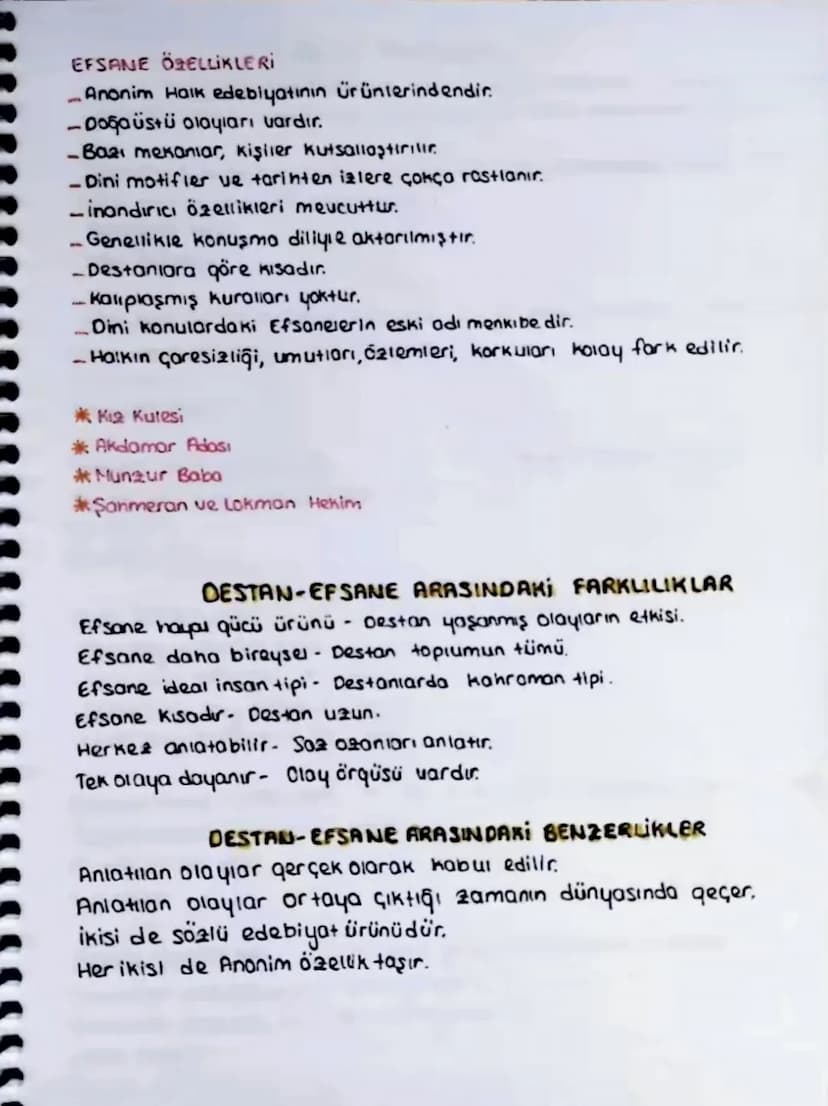 EFSANE ÖZELLİKLERİ
- Anonim Halk edebiyatının ürünlerindendir.
- Doğaüstü olayları vardır.
- Bazı mekanlar, kişiler kutsallaştırılır.
- Dini motifler ve tarihten izlere çokça rastlanır.
- İnandırıcı özellikleri mevcuttur.
- Genellikle konuşma diliyle aktarılmıştır.
- Destanlara göre kısadır.
- Kalıplaşmış kuralları yoktur.
- Dini konulardaki Efsanelerin eski adı menkıbedir.
- Halkın çaresizliği, umutları, özlemleri, korkuları kolay fark edilir.
* Kız Kulesi
* Akdamar Adası
* Munzur Baba
* Şahmeran ve Lokman Hekim
DESTAN-EFSANE ARASINDAKİ FARKLILIKLAR
Efsane hayal gücü ürünü - Destan yaşanmış olayların etkisi.
Efsane daha bireysel - Destan toplumun tümü.
Efsane ideal insan tipi - Destanlarda kahraman tipi.
Efsane kısadır - Destan uzun.
Herkez anlatabilir - Saz ozanları anlatır.
Tek olaya dayanır - Olay örgüsü vardır.
DESTAN-EFSANE ARASINDAKİ BENZERLİKLER
Anlatılan olaylar gerçek olarak kabul edilir.
Anlatılan olaylar ortaya çıktığı zamanın dünyasında geçer.
İkisi de sözlü edebiyat ürünüdür.
Her ikisi de Anonim özellik taşır.